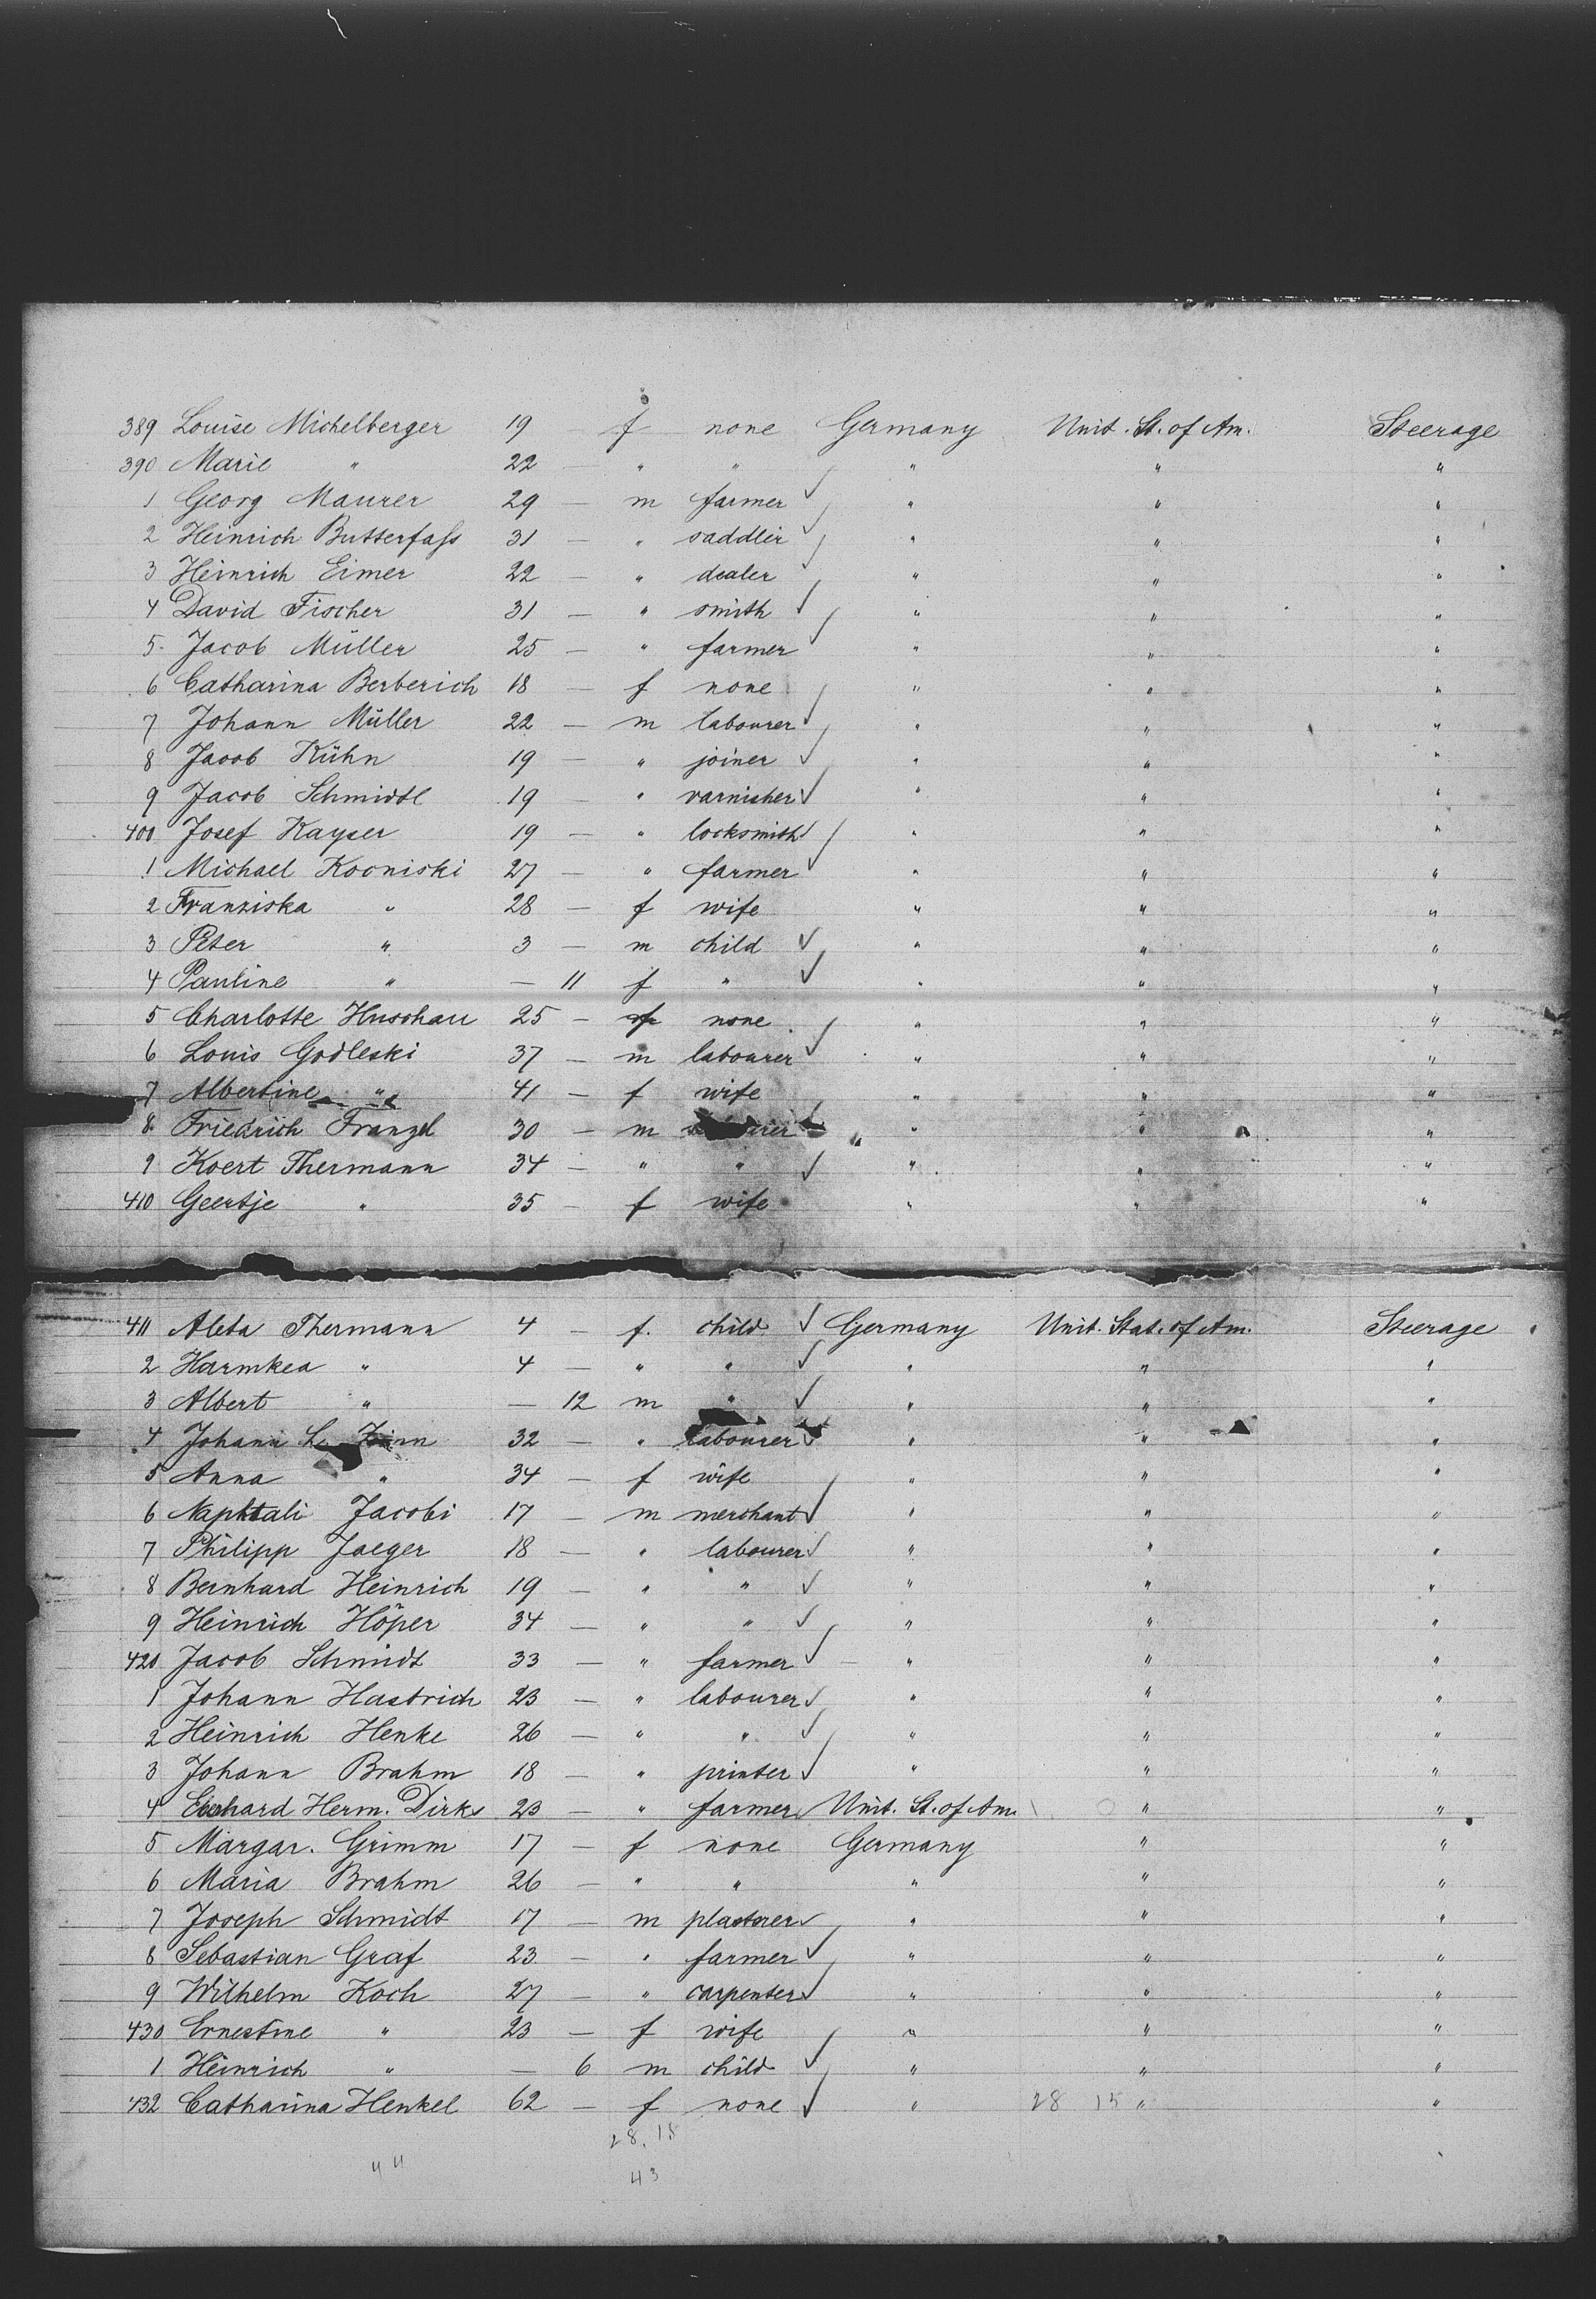 389 Louise Michelberger 19 f none Germany Unit. St. of Am. Steerage
390 Marie " 22 — " " " " "
1 Georg Maurer 29 — m farmer ✓ " " "
2 Heinrich Butterfaſs 31 — " saddler ✓ " " "
3 Heinrich Eimer 22 — " dealer ✓ " " "
4 David Fischer 31 — " smith ✓ " " "
5. Jacob Müller 25 — " farmer ✓ " " "
6 Catharina Berberich 18 — f none " " "
7 Johann Müller 22 — m labourer ✓ " " "
8 Jacob Kühn 19 — " joiner ✓ " " "
9 Jacob Schmidtl 19 — " varnisher ✓ " " "
400 Josef Kayser 19 — " locksmith ✓ " " "
1 Michael Kocniski 27 — " farmer ✓ " " "
2 Franziska " 28 — f wife " " "
3 Peter " 3 — m child ✓ " " "
4 Pauline " — 11 f " ✓ " " "
5 Charlotte Huschau 25 — f none " " "
6 Louis Godleski 37 — m labourer ✓ " " "
7 Albertine " 41 — f wife " " "
8. Friedrich Franzel 30 — m " " "
9 Koert Thermann 34 — " " ✓ " " "
410 Geertje " 35 — f wife " " "
411 Aleta Thermann 4 — f. child ✓ Germany Unit. Stat. of Am. Steerage
2 Harmkea " 4 — " " ✓ " " "
3 Albert " — 12 m " ✓ " " "
4 Johann 32 — " labourer ✓ " " "
5 Anna " 34 — f wife " " "
6 Naphtali Jacobi 17 — m merchant ✓ " " "
7 Philipp Jaeger 18 — " labourer ✓ " " "
8 Bernhard Heinrich 19 — " " ✓ " " "
9 Heinrich Höper 34 — " " ✓ " " "
420 Jacob Schmidt 33 — " farmer ✓ " " "
1 Johann Hastrich 23 — " labourer ✓ " " "
2 Heinrich Henke 26 — " " ✓ " " "
3 Johann Brahm 18 — " printer ✓ " " "
4 Herm. Dirks 23 — " farmer Unit. St. of Am. " "
5 Margar. Grimm 17 — f none Germany " "
6 Maria Brahm 26 — " " " " "
7 Joseph Schmidt 17 — m plasterer ✓ " " "
8 Sebastian Graf 23 — " farmer ✓ " " "
9 Wilhelm Koch 27 — " carpenter ✓ " " "
430 Ernestine " 23 — f wife " " "
1 Heinrich " — 6 m child ✓ " " "
432 Catharina Henkel 62 — f none ✓ " 28 15 " "
28. 15
44 43